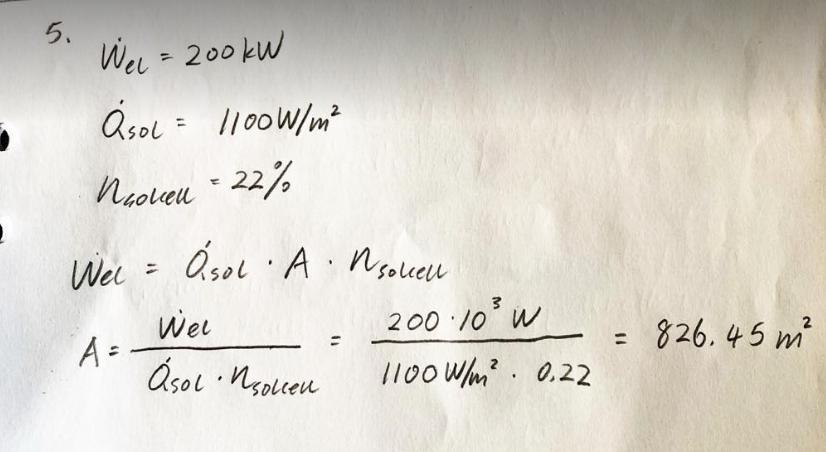 5.
Ẇel = 200 kW
Q̇sol = 1100 W/m²
ηsolcell = 22%
Ẇel = Q̇sol · A · ηsolcell
A = Ẇel / (Q̇sol · ηsolcell) = 200 · 10³ W / (1100 W/m² · 0.22) = 826.45 m²